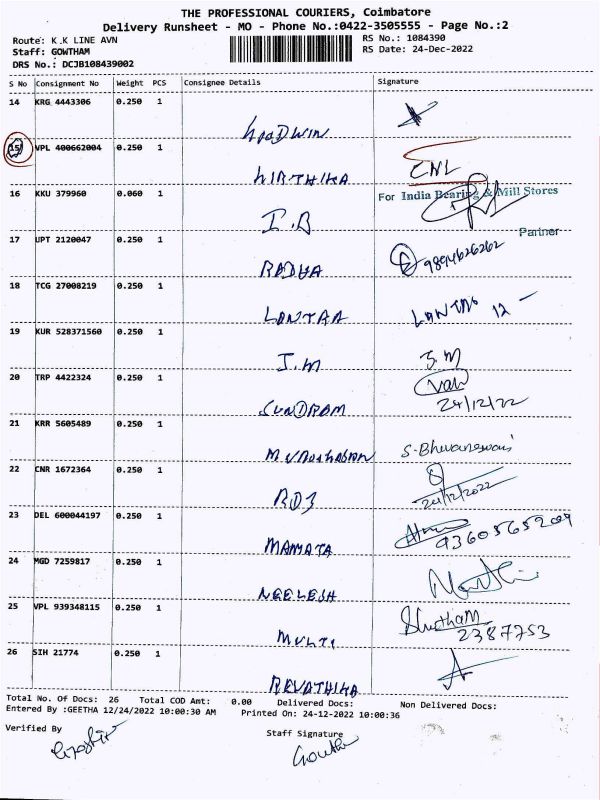 THE PROFESSIONAL COURIERS, Coimbatore
Delivery Runsheet - MO - Phone No.:0422-3505555 - Page No.:2
Route: K.K LINE AVN RS No.: 1084390
Staff: GOWTHAM RS Date: 24-Dec-2022
DRS No.: DCJB108439002
S No Consignment No Weight PCS Consignee Details Signature
14 KRG 4443306 0.250 1
GOODWIN
15 VPL 400662004 0.250 1
KIRTHIKA CNL
16 KKU 379960 0.060 1 For India Bearing & Mill Stores
I.B
Partner
17 UPT 2120047 0.250 1
RADHA 9894626262
18 TCG 27008219 0.250 1
LANTAA LANTAA 12
19 KUR 528371560 0.250 1
J.M J.M
20 TRP 4422324 0.250 1
SUNDRAM 24/12/22
21 KRR 5605489 0.250 1
S. Bhuvaneswari
22 CNR 1672364 0.250 1
24/12/2022
23 DEL 600044197 0.250 1
MAMATA
24 MGD 7259817 0.250 1
NEELESH
25 VPL 939348115 0.250 1
MULTI 2387753
26 SIH 21774 0.250 1
REVATHIKA
Total No. Of Docs: 26 Total COD Amt: 0.00 Delivered Docs: Non Delivered Docs:
Entered By :GEETHA 12/24/2022 10:00:30 AM Printed On: 24-12-2022 10:00:36
Verified By Staff Signature
Gowtham